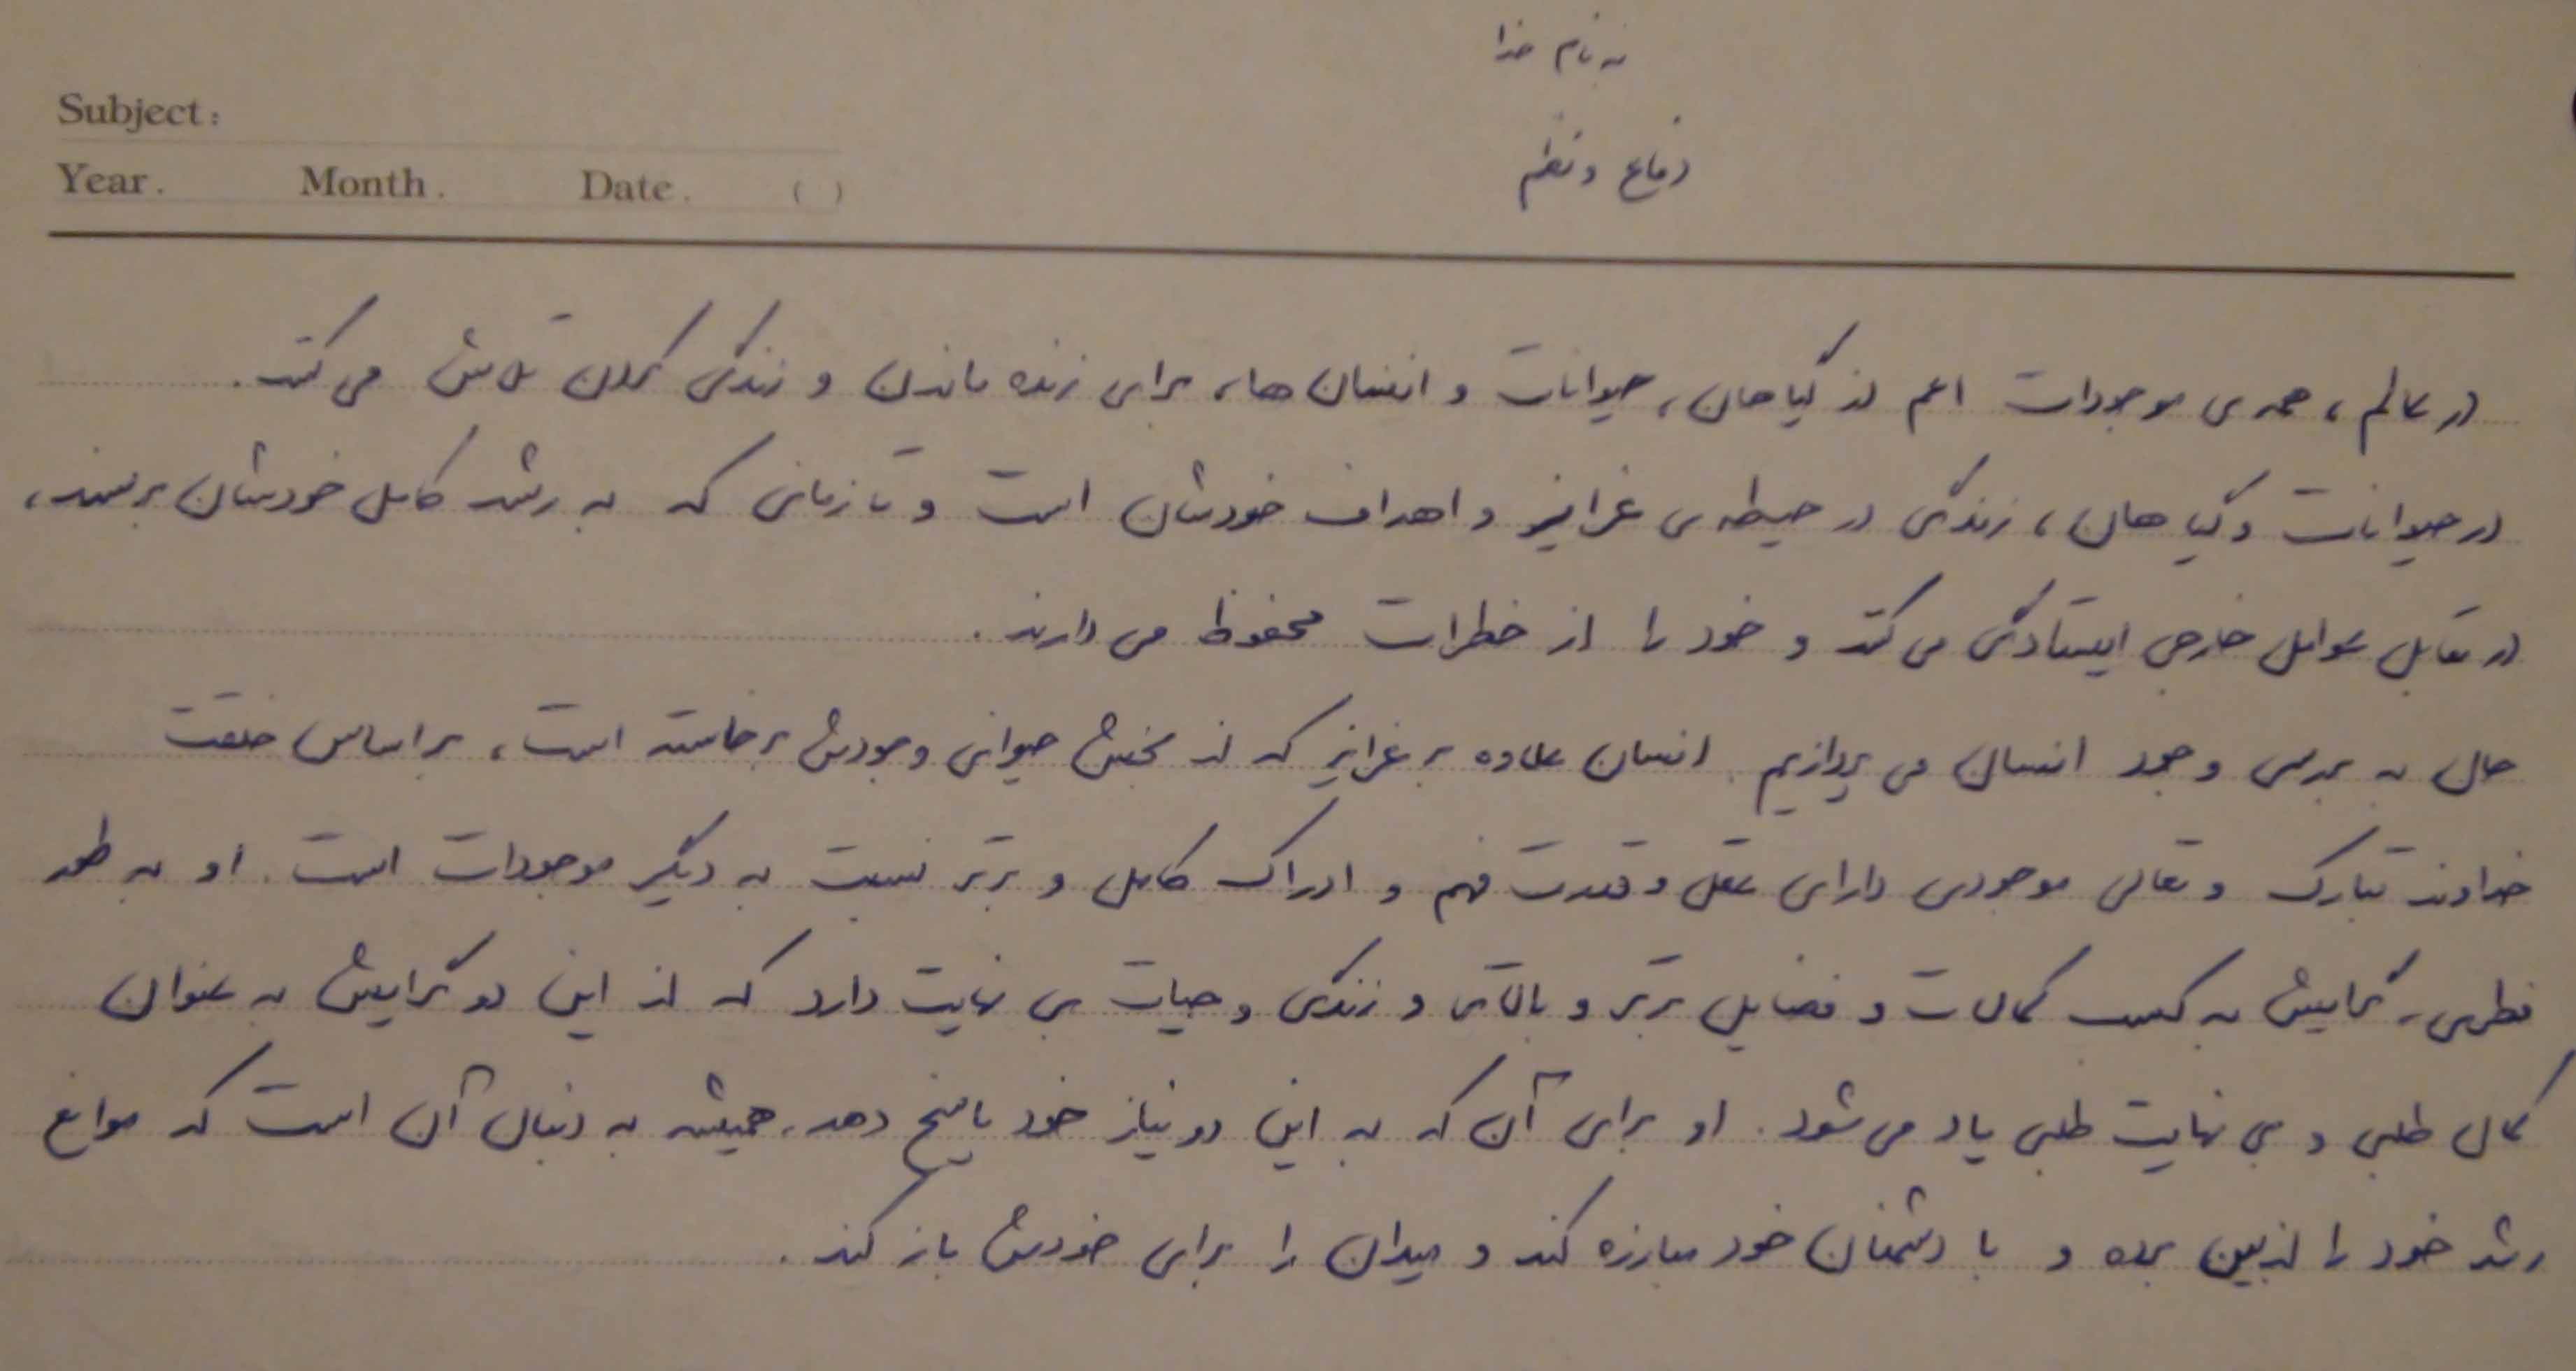 به نام خدا
Subject:
دفاع و نظم
Year. Month. Date. ( )
در عالم، همه ی موجودات اعم از گیاهان، حیوانات و انسان ها، برای زنده ماندن و زندگی کردن تلاش می کنند.
در حیوانات و گیاهان، زندگی در حیطه ی غرایز و اهداف خودشان است و تا زمانی که به رشد کامل خودشان برسند،
در مقابل عوامل خارجی ایستادگی می کنند و خود را از خطرات محفوظ می دارند.
حال به بررسی وجود انسان می پردازیم. انسان علاوه بر غرایز که از بخش حیوانی وجودش برخاسته است، بر اساس خلقت
خداوند تبارک و تعالی موجودی دارای عقل و قدرت فهم و ادراک کامل و برتر نسبت به دیگر موجودات است. او به طور
فطری، گرایش به کسب کمالات و فضایل برتر و بالاتر و زندگی و حیات بی نهایت دارد که از این دو گرایش به عنوان
کمال طلبی و بی نهایت طلبی یاد می شود. او برای آن که به این دو نیاز خود پاسخ دهد، همیشه به دنبال آن است که موانع
رشد خود را از بین برده و با دشمنان خود مبارزه کند و میدان را برای خودش باز کند.